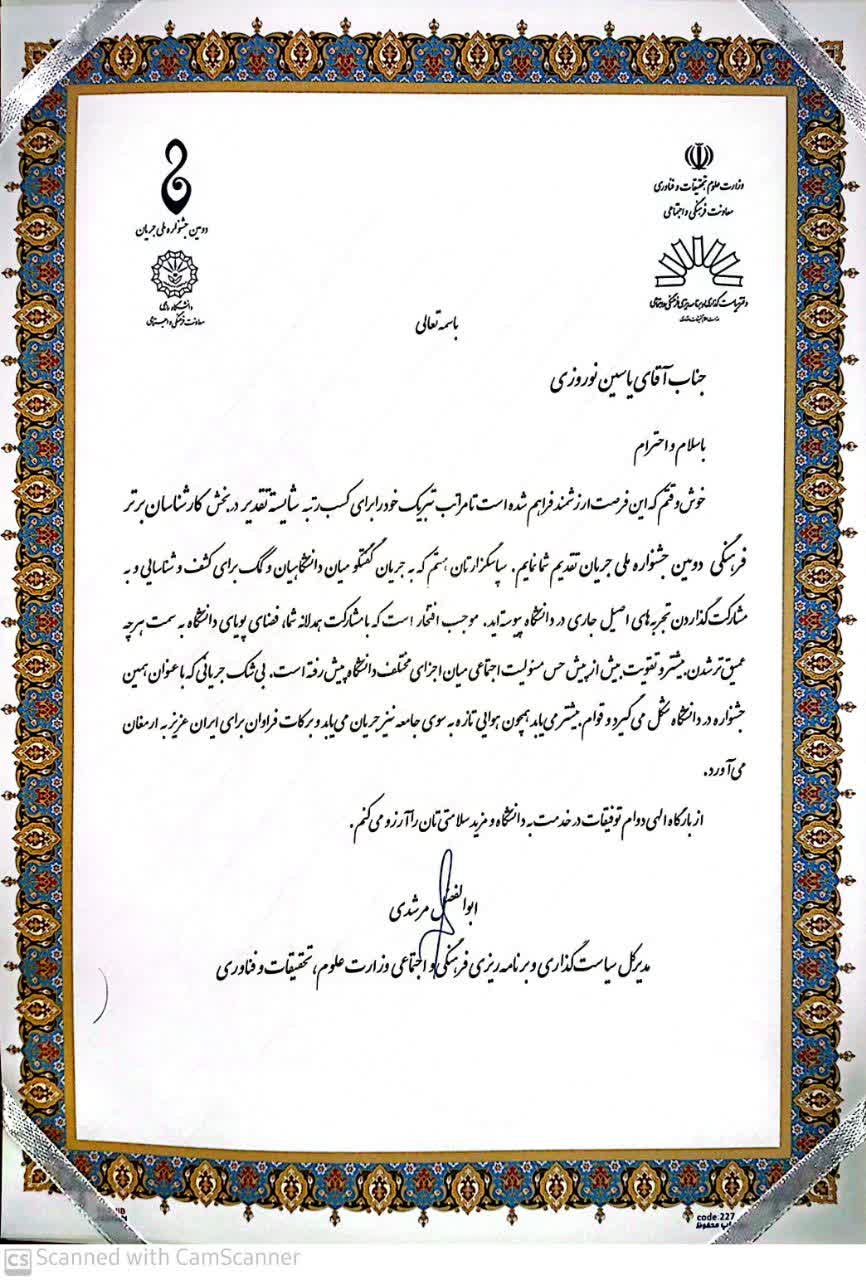 وزارت علوم تحقیقات و فناوری
معاونت فرهنگی و اجتماعی
دفتر سیاست گذاری و برنامه ریزی فرهنگی و اجتماعی
دومین جشنواره ملی جریان
معاونت فرهنگی و اجتماعی
باسمه تعالی
جناب آقای یاسین نوروزی
باسلام و احترام
خوش وقتم که این فرصت ارزشمند فراهم شده است تا مراتب تبریک خود را برای کسب رتبه شایسته تقدیر در بخش کارشناسان برتر
فرهنگی دومین جشنواره ملی جریان تقدیم شما نمایم. سپاسگزارتان هستم که به جریان گفتگو میان دانشگاهیان و کمک برای کشف و شناسایی و به
مشارکت گذاردن تجربه های اصیل جاری در دانشگاه پیوسته اید. موجب افتخار است که با مشارکت همدلانه شما، فضای پویای دانشگاه به سمت هرچه
عمیق تر شدن بیشتر و تقویت بیش از پیش حس مسئولیت اجتماعی میان اجزای مختلف دانشگاه پیش رفته است. بی شک جریانی که با عنوان همین
جشنواره در دانشگاه شکل می گیرد و قوام بیشتر می یابد همچون هوایی تازه به سوی جامعه نیز جریان می یابد و برکات فراوان برای ایران عزیز به ارمغان
می آورد.
از بارگاه الهی دوام توفیقات در خدمت به دانشگاه و مزید سلامتی تان را آرزو می کنم.
ابوالفضل مرشدی
مدیرکل سیاست گذاری و برنامه ریزی فرهنگی و اجتماعی وزارت علوم، تحقیقات و فناوری
code:227
CS Scanned with CamScanner